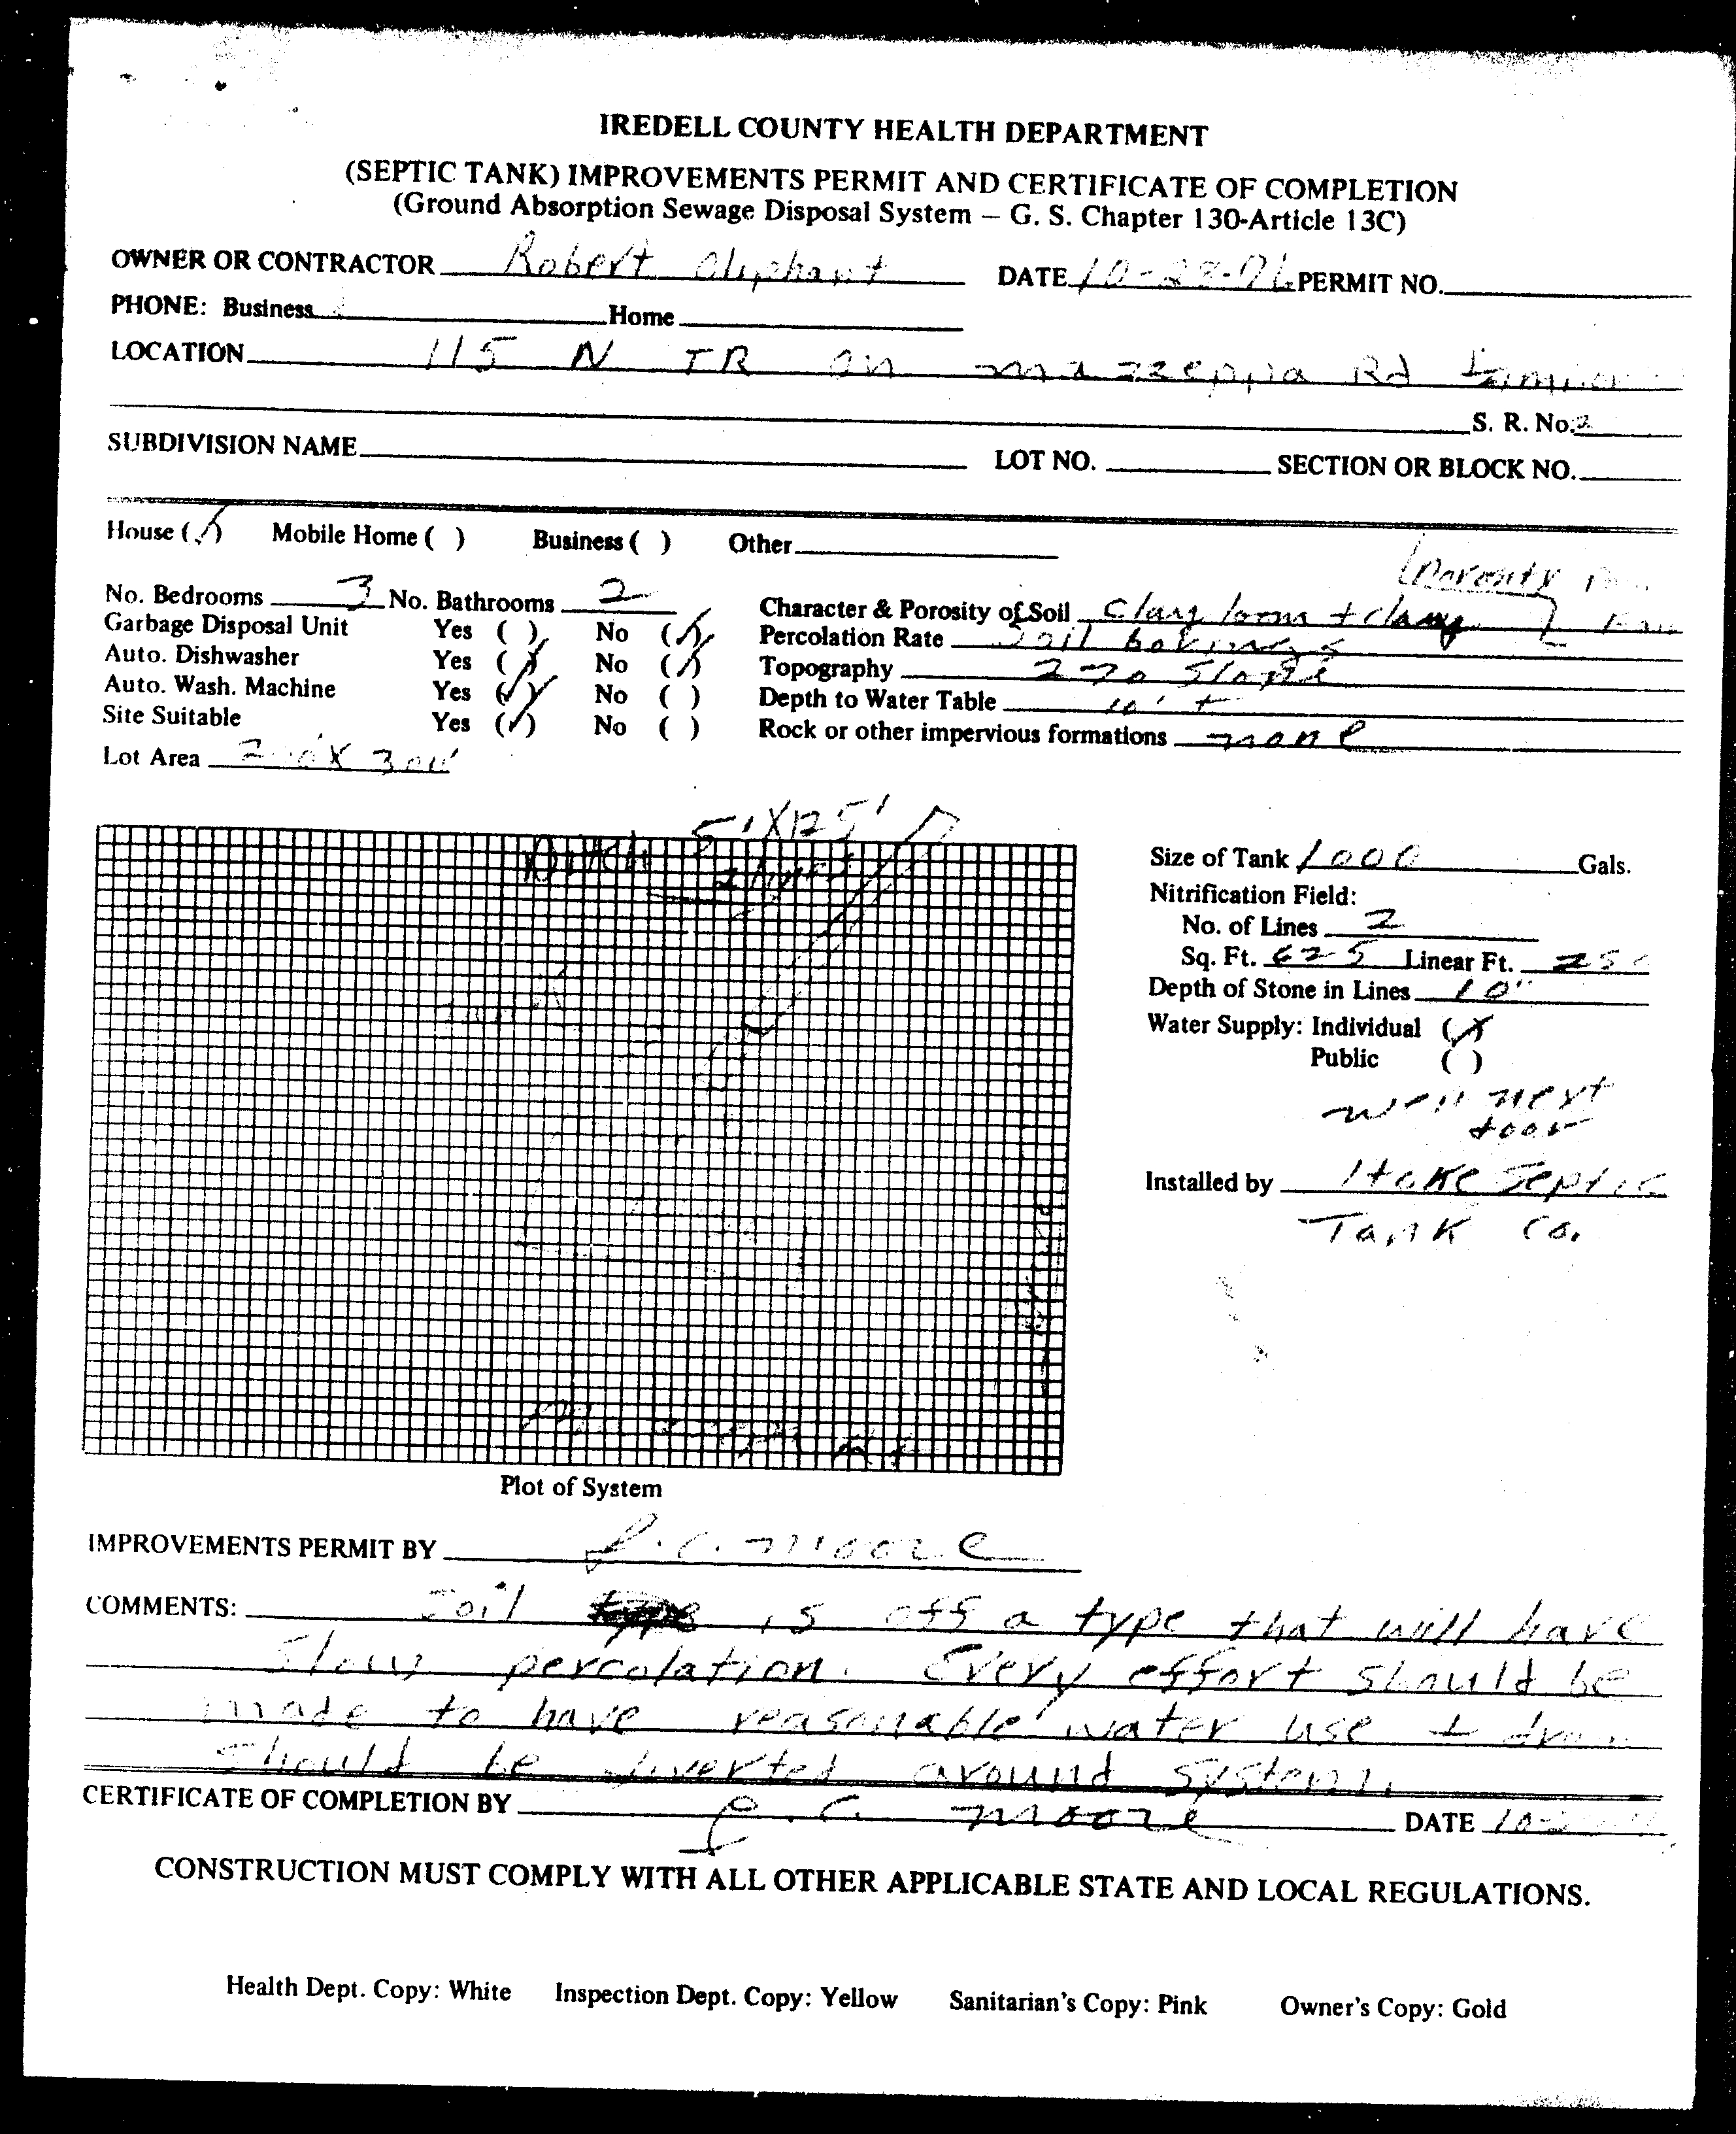 IREDELL COUNTY HEALTH DEPARTMENT
(SEPTIC TANK) IMPROVEMENTS PERMIT AND CERTIFICATE OF COMPLETION
(Ground Absorption Sewage Disposal System – G. S. Chapter 130-Article 13C)
OWNER OR CONTRACTOR Robert Oliphant DATE 10-28-76 PERMIT NO.
PHONE: Business Home
LOCATION 115 N TR on mazzeppa Rd
S. R. No. 2
SUBDIVISION NAME LOT NO. SECTION OR BLOCK NO.
House (✓) Mobile Home ( ) Business ( ) Other
No. Bedrooms 3 No. Bathrooms 2 Character & Porosity of Soil Clay loam + clay
Garbage Disposal Unit Yes ( ) No (✓) Percolation Rate Soil borings
Auto. Dishwasher Yes (✓) No (✓) Topography 2% Slope
Auto. Wash. Machine Yes (✓) No ( ) Depth to Water Table 10' +
Site Suitable Yes (✓) No ( ) Rock or other impervious formations none
Lot Area 200 X 300'
5' X 125'
Size of Tank 1000 Gals.
Nitrification Field:
No. of Lines 2
Sq. Ft. 625 Linear Ft. 250
Depth of Stone in Lines 10"
Water Supply: Individual (✓)
Public ( )
well next
door
Installed by Hoke Septic
Tank Co.
Plot of System
IMPROVEMENTS PERMIT BY J. C. Moore
COMMENTS: Soil is off a type that will have
slow percolation. Every effort should be
made to have reasonable water use +
should be diverted around system.
CERTIFICATE OF COMPLETION BY J. C. Moore DATE 10-
CONSTRUCTION MUST COMPLY WITH ALL OTHER APPLICABLE STATE AND LOCAL REGULATIONS.
Health Dept. Copy: White Inspection Dept. Copy: Yellow Sanitarian's Copy: Pink Owner's Copy: Gold